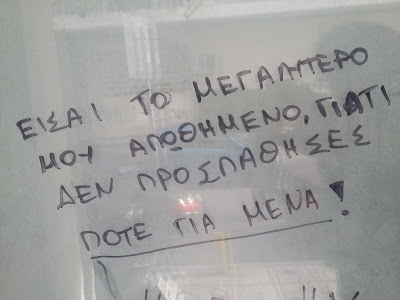 ΕΙΣΑΙ ΤΟ ΜΕΓΑΛΗΤΕΡΟ
ΜΟΥ ΑΠΩΘΗΜΕΝΟ, ΓΙΑΤΙ
ΔΕΝ ΠΡΟΣΠΑΘΗΣΕΣ
ΠΟΤΕ ΓΙΑ ΜΕΝΑ!